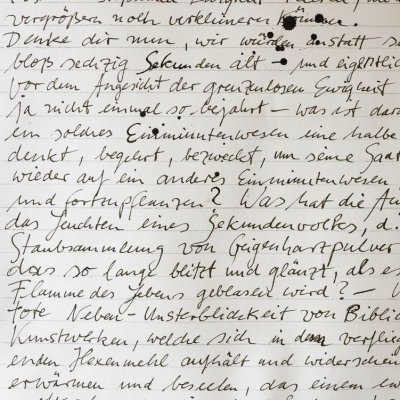 vergrößern noch verkleinern können.
Denke dir nun, wir würden anstatt
bloß sechzig Sekunden alt – und eigentlich
vor dem Angesicht der grenzenlosen Ewigkeit
ja nicht einmal so bejahrt – was ist
ein solches Einminutenwesen eine halbe
denkt, begehrt, bezweckt, um seine Saat
wieder auf ein anderes Einminutenwesen
und fortzupflanzen? Was hat die
das Leuchten eines Sekundenvolkes, d.
Staubsammlung von Geigenharzpulver
das so lange blitzt und glänzt, als es
Flamme des Lebens geblasen wird? –
tote Neben-Unsterblichkeit von Biblio
Kunstwerken, welche sich in dem verflieg
enden Hexenmehl aufhält und widerschein
erwärmen und beseelen, das einem ew